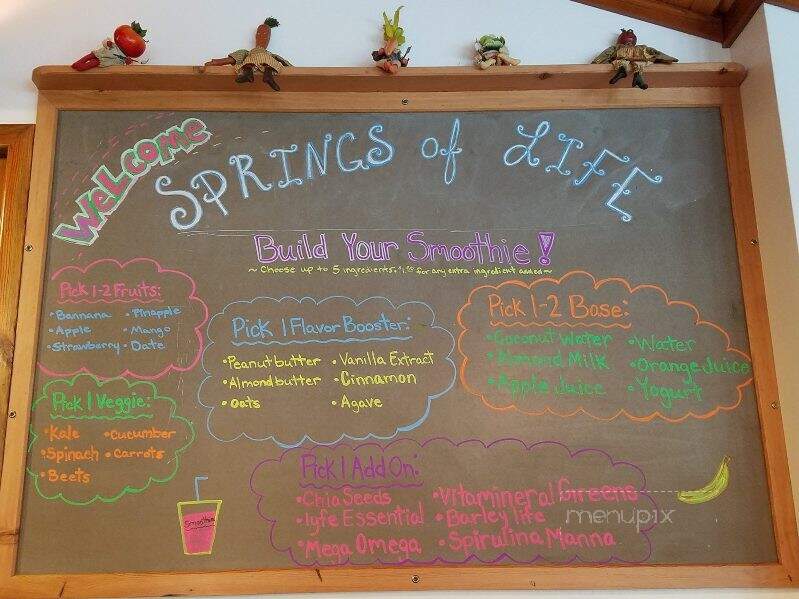 Welcome
SPRINGS of LIFE
Build Your Smoothie!
~ Choose up to 5 ingredients. for any extra ingredient added ~
Pick 1-2 Fruits:
• Bannana • Pineapple
• Apple • Mango
• Strawberry • Date
Pick 1 Flavor Booster:
• Peanut butter • Vanilla Extract
• Almond butter • Cinnamon
• Oats • Agave
Pick 1-2 Base:
• Coconut Water • Water
• Almond Milk • Orange Juice
• Apple Juice • Yogurt
Pick 1 Veggie:
• Kale • Cucumber
• Spinach • Carrots
• Beets
Pick 1 Add On:
• Chia Seeds • Vitamineral Greens
• lyfe Essential • Barley life
• Mega Omega • Spirulina Manna
Smoothie
menupix